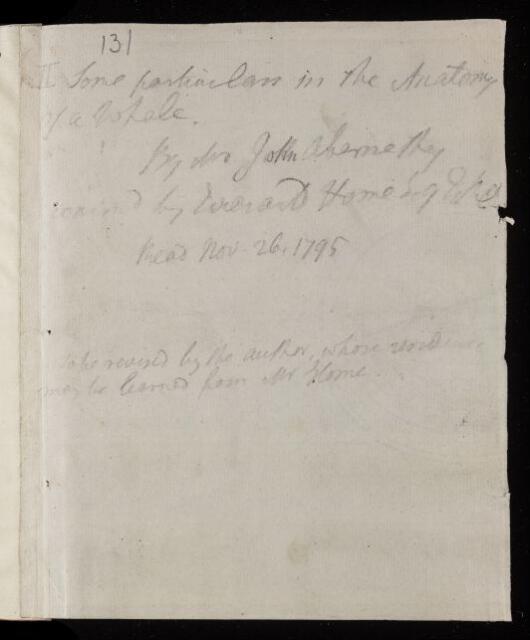 131
II Some particulars in the Anatomy
of a Whale.
By Mr John Abernethy
by Everard Home
Read Nov. 26. 1795
to be revised by the author, whose residence
may be learned from Mr Home.